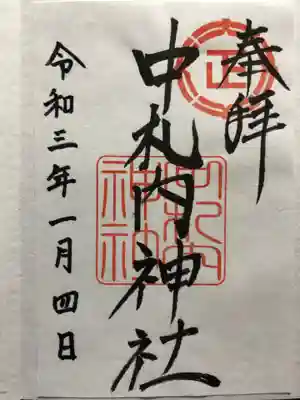 奉拝
中札内神社
令和三年一月四日
正
中札内
神社